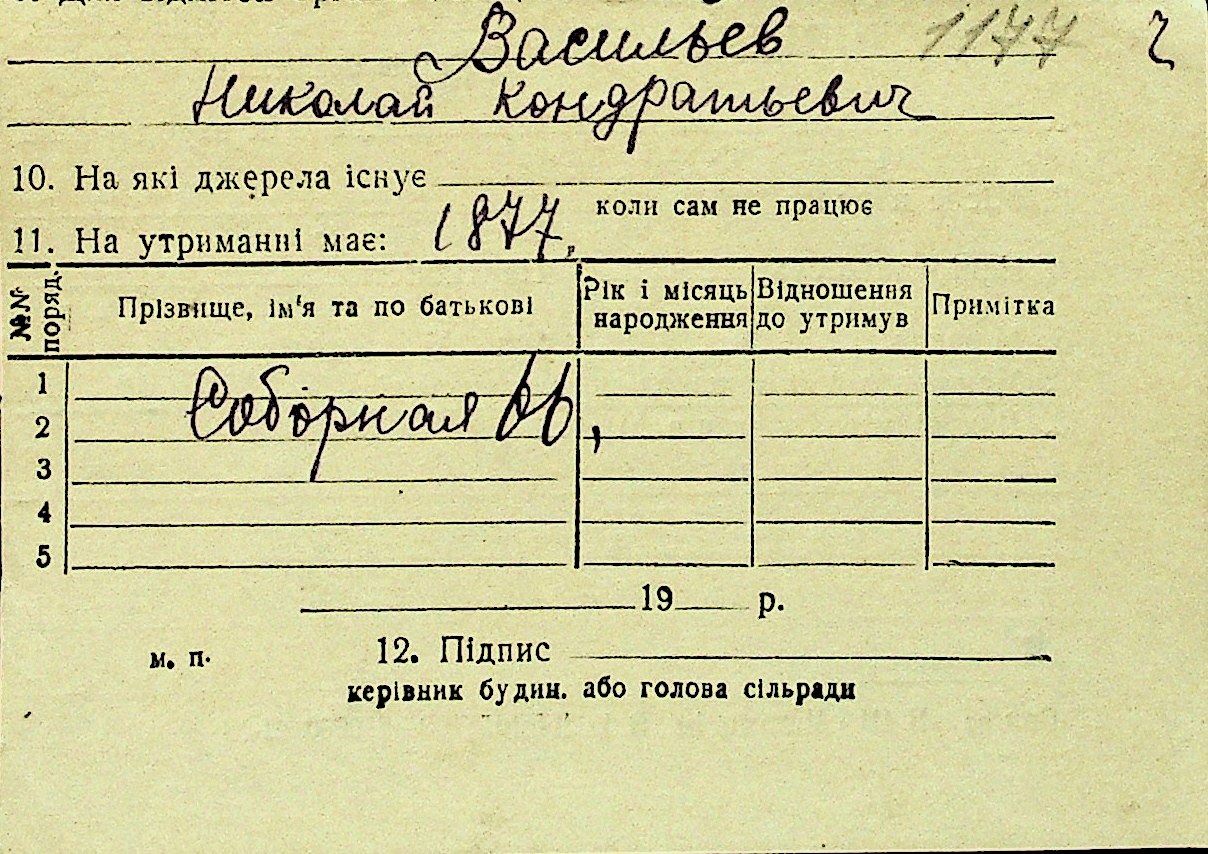 Васильев 1177
Николай Кондратьевич
10. На які джерела існує
коли сам не працює
11. На утриманні має: 1877,
№№ поряд. Прізвище, ім'я та по батькові Рік і місяць народження Відношення до утримув Примітка
1
Соборная 66,
2
3
4
5
19 р.
м. п. 12. Підпис
керівник будин. або голова сільради